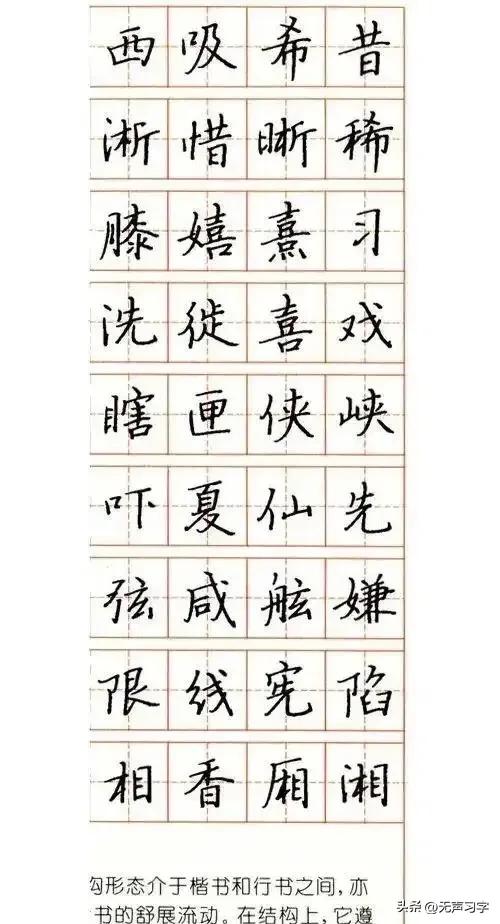 西吸希昔
淅惜晰稀
膝嬉熹习
洗徙喜戏
瞎匣侠峡
吓夏仙先
弦咸舷嫌
限线宪陷
相香厢湘
形态介于楷书和行书之间,亦
书的舒展流动。在结构上,它遵
头条@无声习字